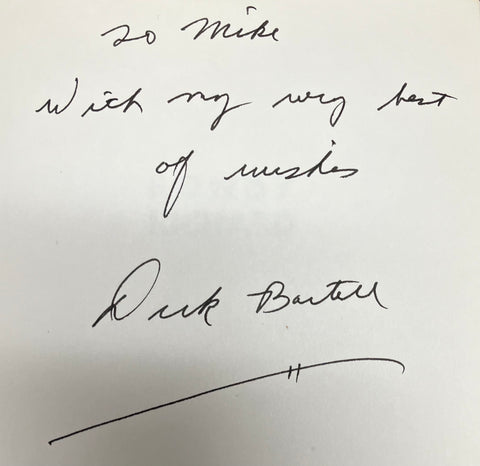 To Mike
With my very best
of wishes
Dick Bartell